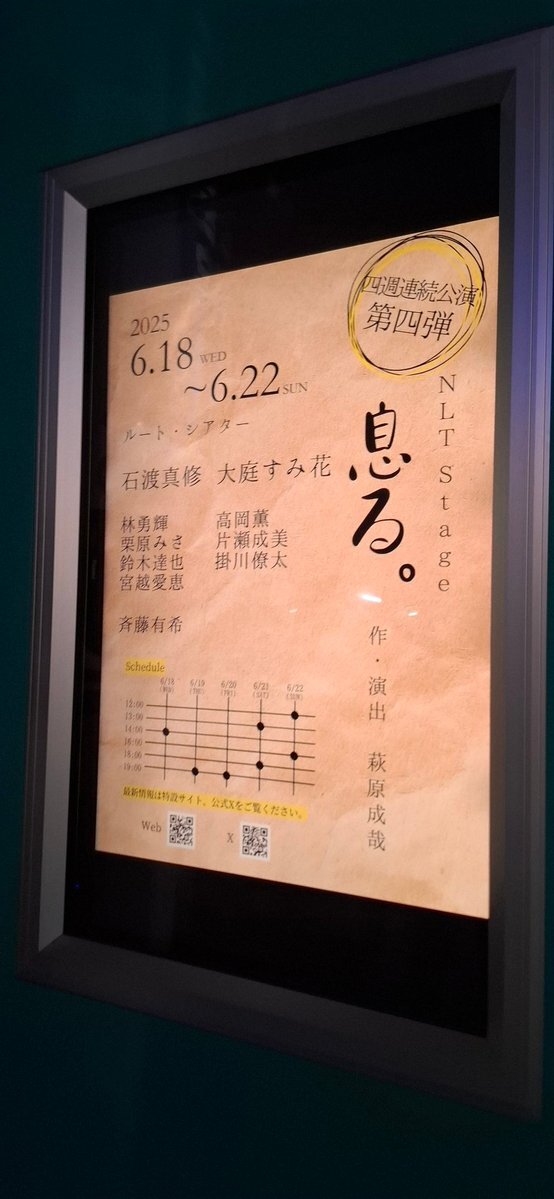 四週連続公演
第四弾
NLT Stage
息る。
作・演出 萩原成哉
2025
6.18 WED
～6.22 SUN
ルート・シアター
石渡真修 大庭すみ花
林勇輝 高岡薫
栗原みさ 片瀬成美
鈴木達也 掛川僚太
宮越愛恵
斉藤有希
Schedule
6/18 6/19 6/20 6/21 6/22
(WED) (THU) (FRI) (SAT) (SUN)
12:00
13:00
14:00
16:00
18:00
19:00
最新情報は特設サイト、公式Xをご覧ください。
Web X